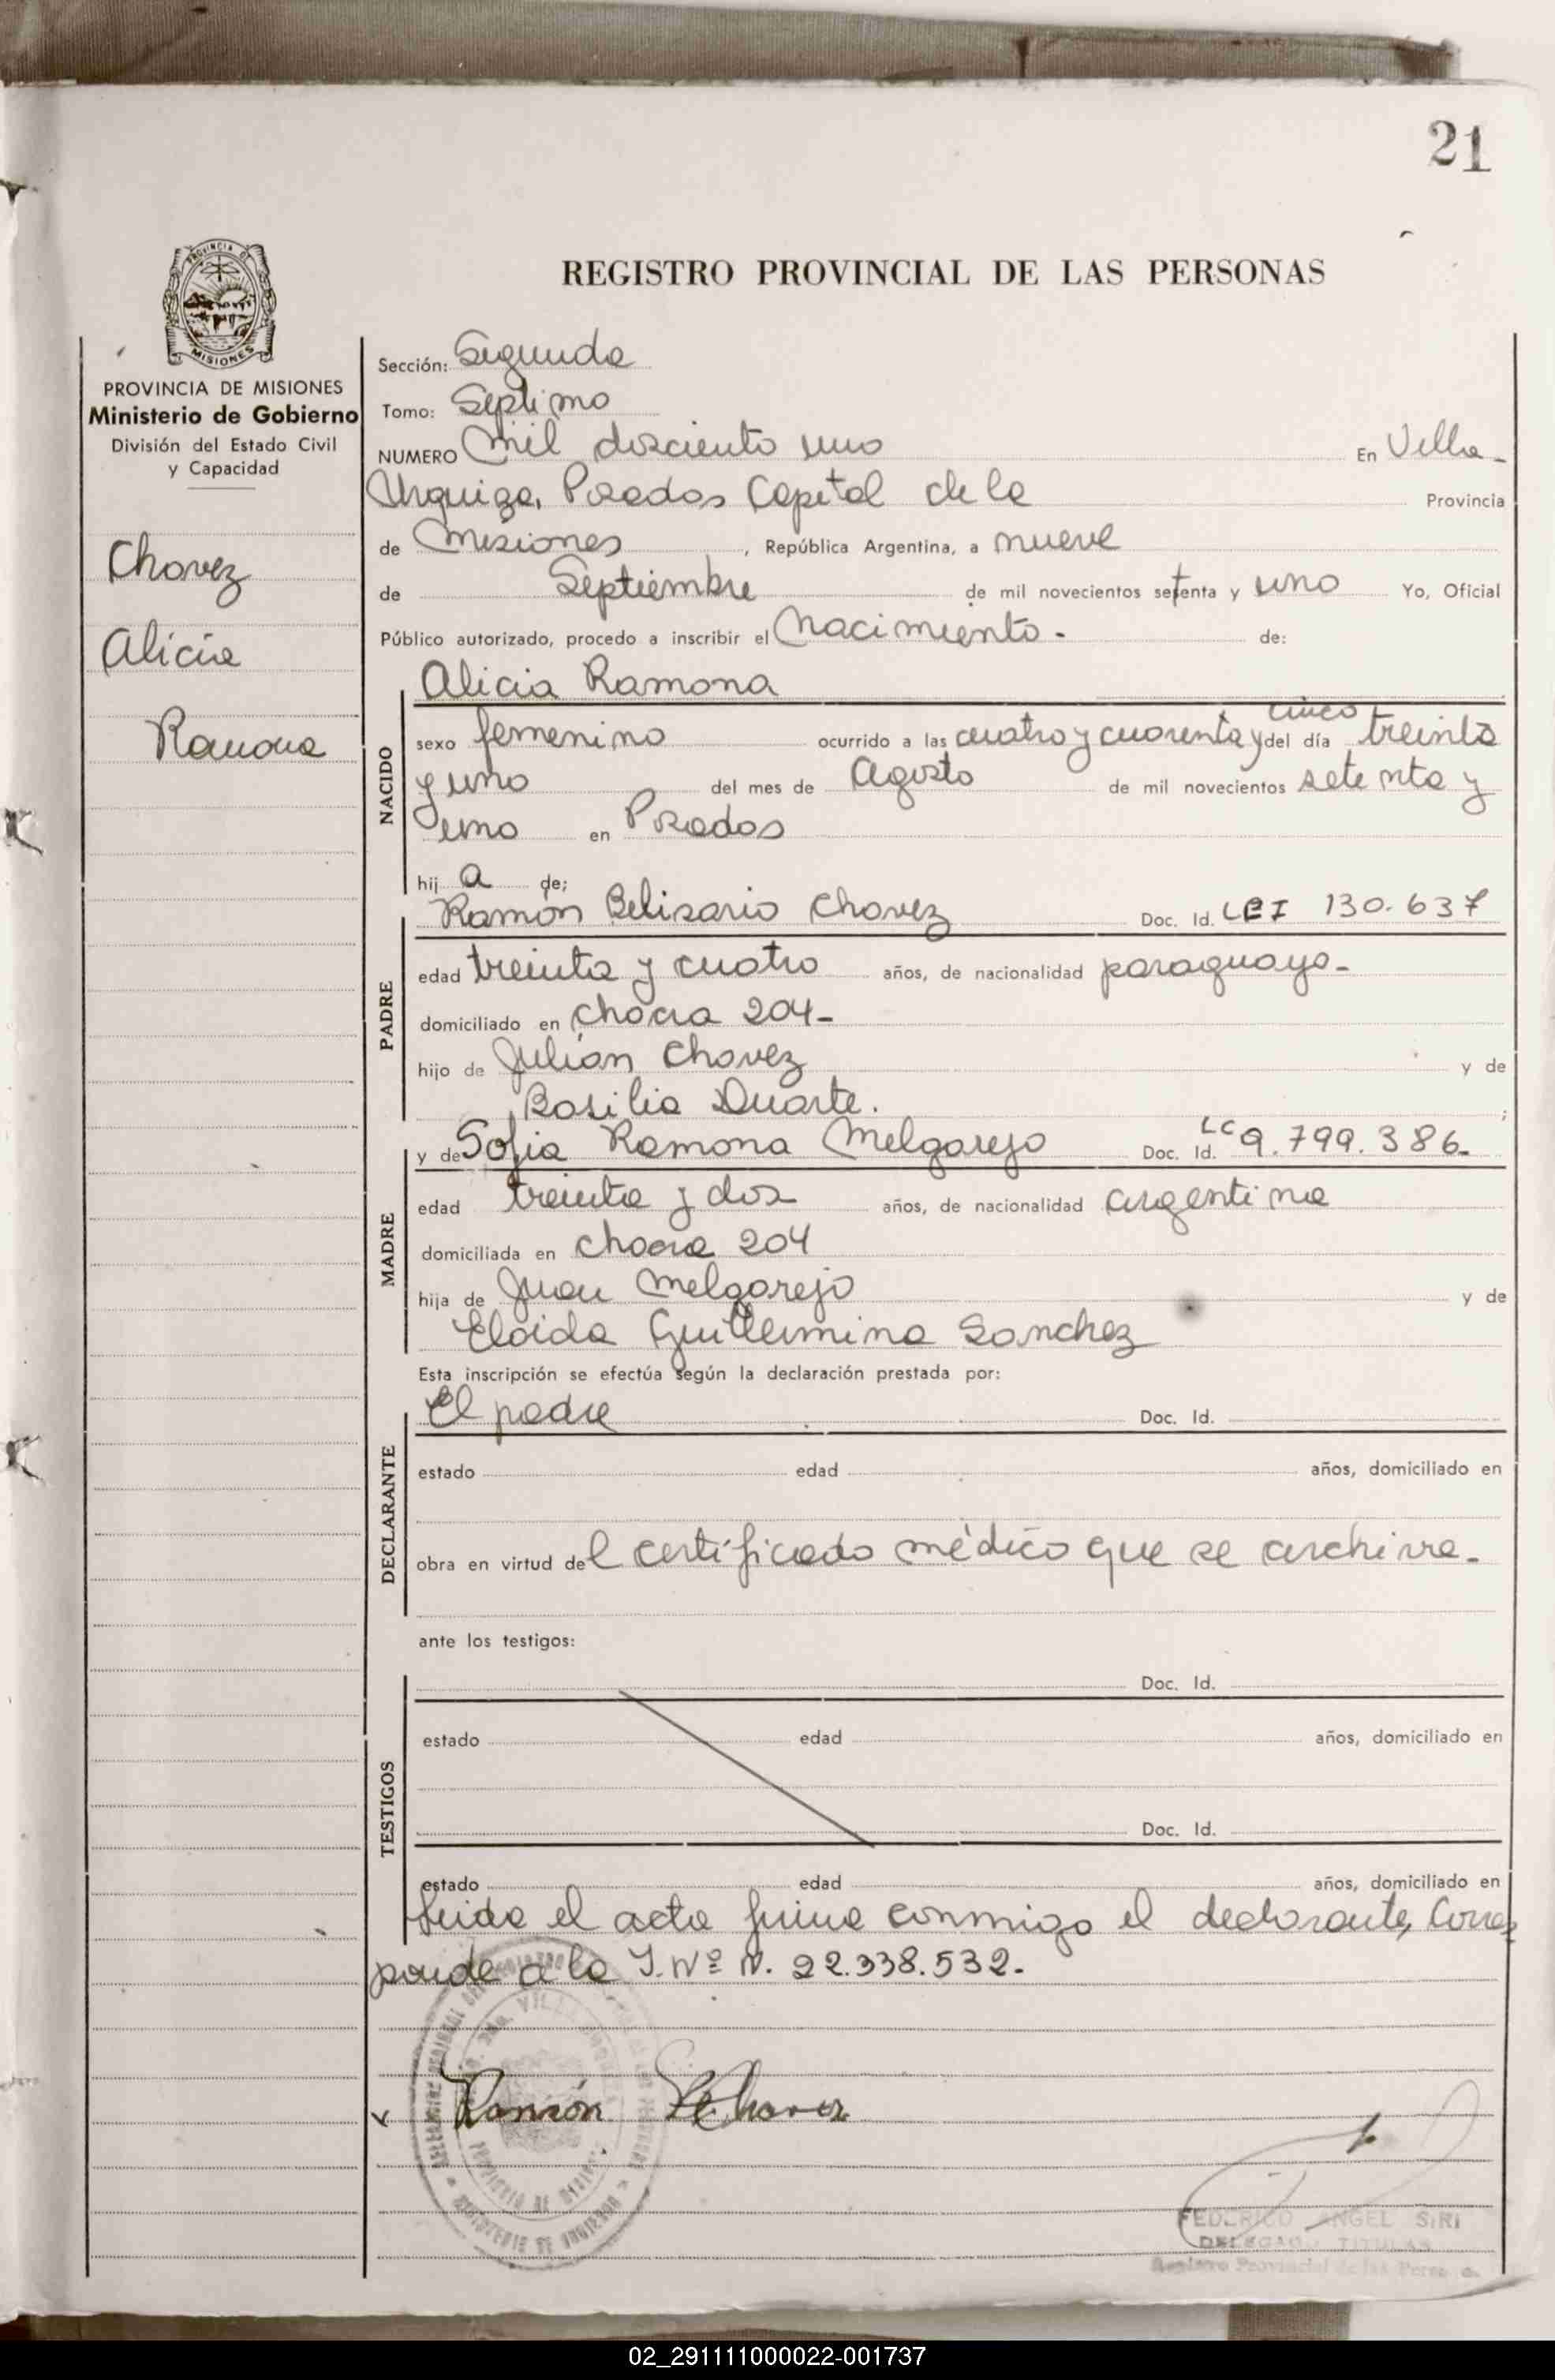 21
PROVINCIA DE
MISIONES
REGISTRO PROVINCIAL DE LAS PERSONAS
PROVINCIA DE MISIONES
Ministerio de Gobierno
División del Estado Civil
y Capacidad
Chavez
Alicia
Ramona
Sección: Segunda
Tomo: Septimo
NUMERO Mil dosciento uno En Villa-
Urquiza, Posadas Capital de la Provincia
de Misiones, República Argentina, a nueve
de Septiembre de mil novecientos setenta y uno Yo, Oficial
Público autorizado, procedo a inscribir el Nacimiento.- de:
Alicia Ramona
NACIDO
sexo femenino ocurrido a las cuatro y cuarenta y cinco del día treinta
y uno del mes de Agosto de mil novecientos setenta y
uno en Posadas
hij a de;
PADRE
Ramón Belisario Chavez Doc. Id. LEI 130.637
edad treinta y cuatro años, de nacionalidad paraguayo-
domiciliado en Chacra 204-
hijo de Julián Chavez y de
Basilia Duarte. ;
MADRE
y de Sofia Ramona Melgarejo Doc. Id. LC 9.799.386-
edad treinta y dos años, de nacionalidad argentina
domiciliada en Chacra 204
hija de Juan Melgarejo y de
Eloida Guillermina Sanchez
Esta inscripción se efectúa según la declaración prestada por:
DECLARANTE
El padre Doc. Id.
estado edad años, domiciliado en
obra en virtud de l certificado médico que se archiva.-
ante los testigos:
TESTIGOS
Doc. Id.
estado edad años, domiciliado en
Doc. Id.
estado edad años, domiciliado en
Leida el acta firma conmigo el declarante, Corres
ponde a la I. Nº N. 22.338.532.-
Ramón Chavez
FEDERICO ANGEL SIRI
DELEGADO TITULAR
Registro Provincial de las Personas
02_291111000022-001737